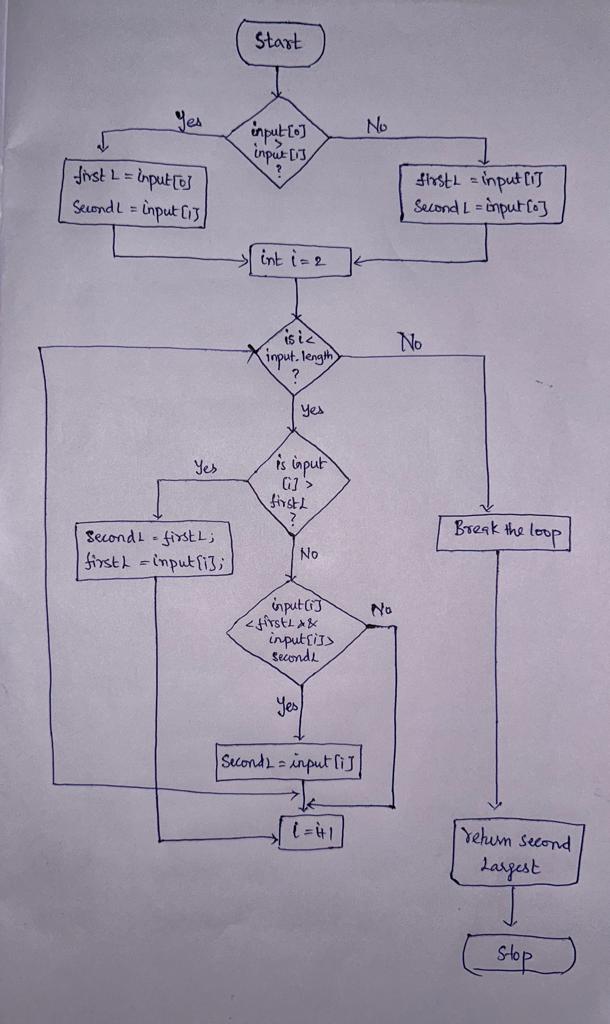 Start
Yes
No
input[0]
>
input[1]
?
first L = input[0]
Second L = input[1]
first L = input[1]
Second L = input[0]
int i = 2
is i <
input.length
?
No
Yes
is input
[i] >
first L
?
Yes
Second L = first L;
first L = input[i];
Break the loop
No
input[i]
< first L &&
input[i] >
Second L
No
Yes
Second L = input[i]
i = i+1
return second
Largest
Stop